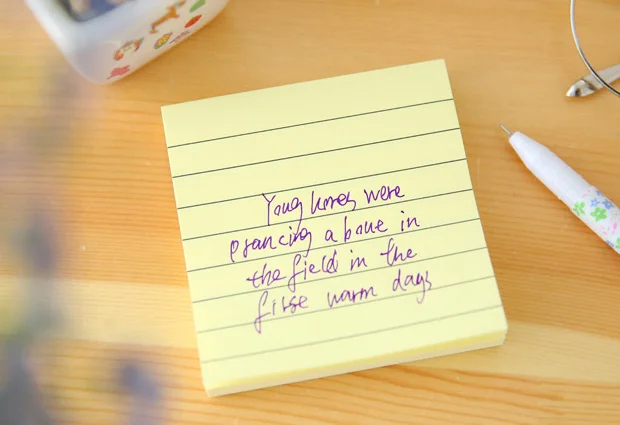 Young horses were
prancing aboue in
the field in the
first warm days